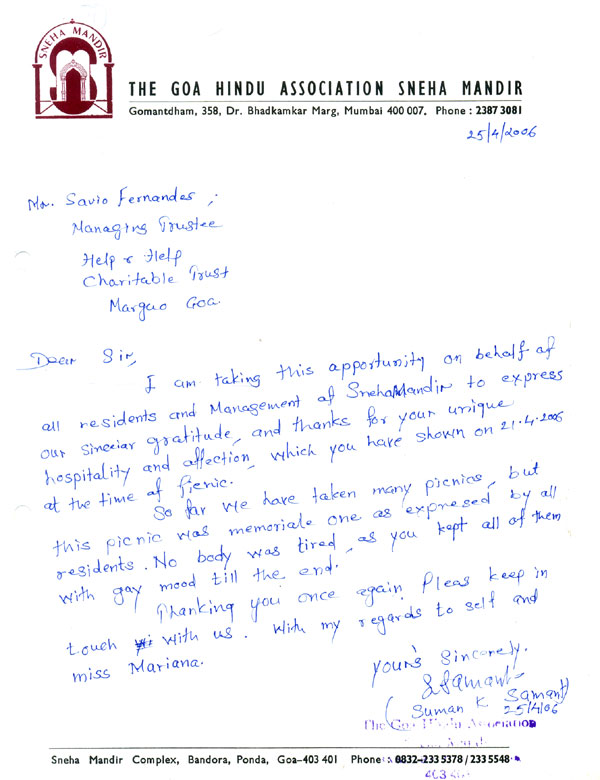 SNEHA MANDIR
THE GOA HINDU ASSOCIATION SNEHA MANDIR
Gomantdham, 358, Dr. Bhadkamkar Marg, Mumbai 400 007. Phone : 2387 3081
25/4/2006
Mr. Savio Fernandes,
Managing Trustee
Help & Help
Charitable Trust
Margao Goa.
Dear Sir,
I am taking this apportunity on behalf of
all residents and Management of SnehaMandir to express
our sinceiar gratitude, and thanks for your unique
hospitality and affection, which you have shown on 21.4.2006
at the time of picnic.
So far we have taken many picnics, but
this picnic was memoriale one as expresed by all
residents. No body was tired, as you kept all of them
with gay mood till the end.
Thanking you once again. Pleas keep in
touch with us. With my regards to self and
miss Mariana.
Your's Sincerely.
SSamant
(Suman K Samant)
25/4/06
The Goa Hindu Association
Sneha Mandir Complex, Bandora, Ponda, Goa-403 401 Phone : 0832-233 5378 / 233 5548
403 401